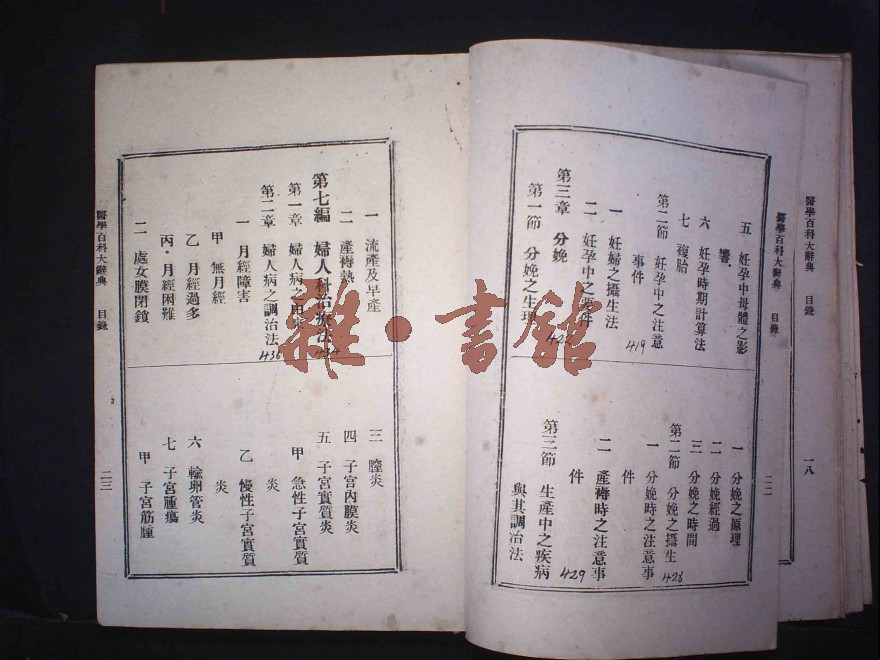 醫學百科大辭典　目錄
一八
醫學百科大辭典　目錄
二二
五　妊孕中母體之影
響
六　妊孕時期計算法
七　複胎
第二節　妊孕中之注意
事件
419
一　妊婦之攝生法
二　妊孕中之要件
第三章　分娩
第一節　分娩之生理
一　分娩之原理
二　分娩經過
三　分娩之時間
第二節　分娩之攝生
428
一　分娩時之注意事
件
二　產褥時之注意事
件
429
第三節　生產中之疾病
與其調治法
一　流產及早產
二　產褥熱
第七編　婦人科治療法
第一章　婦人病之由來
第二章　婦人病之調治法
436
一　月經障害
甲　無月經
乙　月經過多
丙　月經困難
二　處女膜閉鎖
三　膣炎
四　子宮內膜炎
五　子宮實質炎
甲　急性子宮實質
炎
乙　慢性子宮實質
炎
六　輸卵管炎
七　子宮腫瘍
甲　子宮筋腫
醫學百科大辭典　目錄
二三
雜·書館